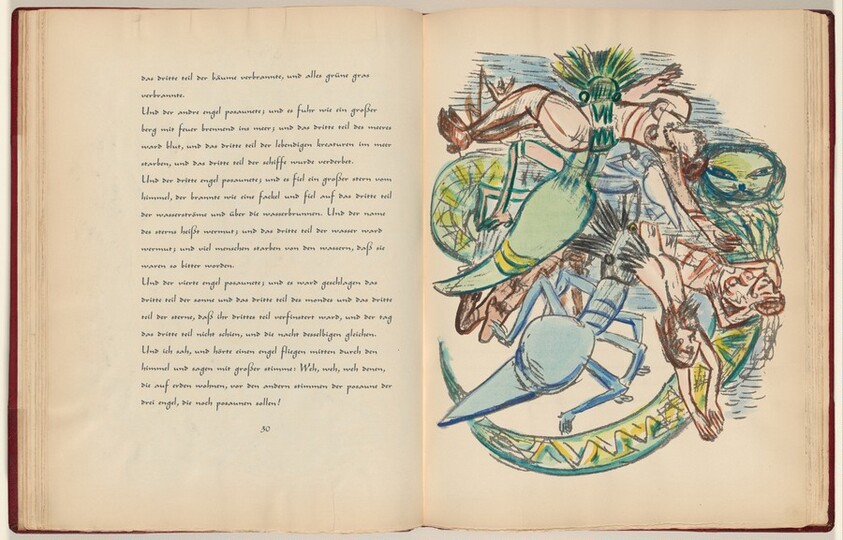 das dritte teil der bäume verbrannte, und alles grüne gras
verbrannte.
Und der andre engel posaunete; und es fuhr wie ein großer
berg mit feuer brennend ins meer; und das dritte teil des meeres
ward blut, und das dritte teil der lebendigen kreaturen im meer
starben, und das dritte teil der schiffe wurde verderbet.
Und der dritte engel posaunete; und es fiel ein großer stern vom
himmel, der brannte wie eine fackel und fiel auf das dritte teil
der wasserströme und über die wasserbrunnen. Und der name
des sterns heißt wermut; und das dritte teil der wasser ward
wermut; und viel menschen starben von den wassern, daß sie
waren so bitter worden.
Und der vierte engel posaunete; und es ward geschlagen das
dritte teil der sonne und das dritte teil des mondes und das dritte
teil der sterne, daß ihr drittes teil verfinstert ward, und der tag
das dritte teil nicht schien, und die nacht desselbigen gleichen.
Und ich sah, und hörte einen engel fliegen mitten durch den
himmel und sagen mit großer stimme: Weh, weh, weh denen,
die auf erden wohnen, vor den andern stimmen der posaune der
drei engel, die noch posaunen sollen!
30